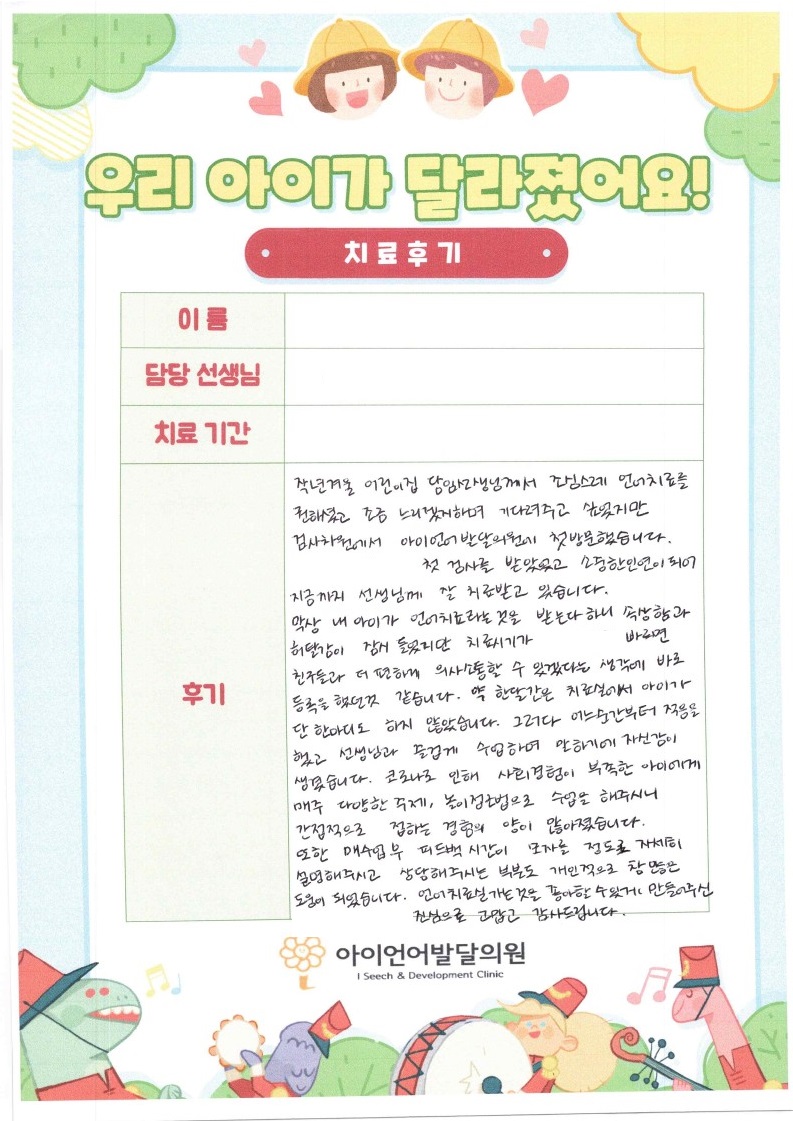 우리 아이가 달라졌어요!
치료후기
이름
담당 선생님
치료 기간
후기
작년겨울 어린이집 담임선생님께서 조심스레 언어치료를
권하셨고 조금 느리겠지하며 기다려주고 싶었지만
검사차원에서 아이언어발달의원에 첫방문했습니다.
첫 검사를 받았었고 소중한인연이되어
지금까지 선생님께 잘 치료받고 있습니다.
막상 내 아이가 언어치료라는것을 받는다 하니 속상함과
허탈감이 잠시 들었지만 치료시기가 빠르면
친구들과 더 편하게 의사소통할 수 있겠다는 생각에 바로
등록을 했던것 같습니다. 약 한달간은 치료실에서 아이가
단 한마디도 하지 않았습니다. 그러다 어느순간부터 적응을
했고 선생님과 즐겁게 수업하며 말하기에 자신감이
생겼습니다. 코로나로 인해 사회경험이 부족한 아이에게
매주 다양한 주제, 놀이접근법으로 수업을 해주시니
간접적으로 접하는 경험의 양이 많아졌습니다.
또한 매수업 부 피드백 시간이 모자를 정도로 자세히
설명해주시고 상담해주시는 부분도 개인적으로 참 많은
도움이 되었습니다. 언어치료실가는것을 좋아할 수있게 만들어주신
진심으로 고맙고 감사드립니다.
아이언어발달의원
I Seech & Development Clinic